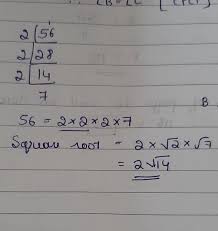 ∠B=∠C [CPCT]
2 | 56
2 | 28
2 | 14
7
B
56 = 2×2×2×7
Square root = 2×√2×√7
= 2√14